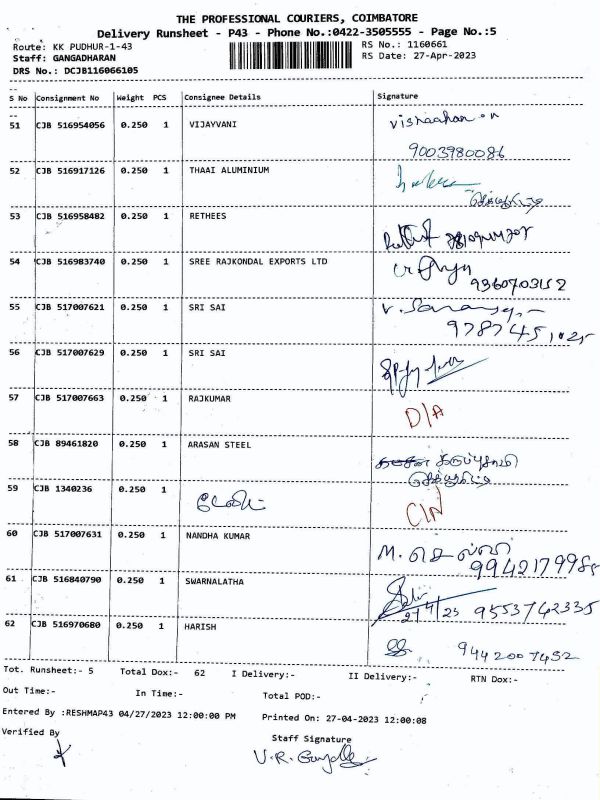 THE PROFESSIONAL COURIERS, COIMBATORE
Delivery Runsheet - P43 - Phone No.:0422-3505555 - Page No.:5
Route: KK PUDHUR-1-43
RS No.: 1160661
Staff: GANGADHARAN
RS Date: 27-Apr-2023
DRS No.: DCJB116066105
S No Consignment No Weight PCS Consignee Details Signature
51 CJB 516954056 0.250 1 VIJAYVANI
9003980086
52 CJB 516917126 0.250 1 THAAI ALUMINIUM
53 CJB 516958482 0.250 1 RETHEES
54 CJB 516983740 0.250 1 SREE RAJKONDAL EXPORTS LTD
9360703152
55 CJB 517007621 0.250 1 SRI SAI
56 CJB 517007629 0.250 1 SRI SAI
57 CJB 517007663 0.250 1 RAJKUMAR D/A
58 CJB 89461820 0.250 1 ARASAN STEEL கருப்புசாமி
59 CJB 1340236 0.250 1 C/N
60 CJB 517007631 0.250 1 NANDHA KUMAR M. செல்வி
9942179985
61 CJB 516840790 0.250 1 SWARNALATHA
27/4/23 9553742335
62 CJB 516970680 0.250 1 HARISH 9442007452
Tot. Runsheet:- 5 Total Dox:- 62 I Delivery:- II Delivery:- RTN Dox:-
Out Time:- In Time:- Total POD:-
Entered By :RESHMAP43 04/27/2023 12:00:00 PM Printed On: 27-04-2023 12:00:08
Verified By Staff Signature